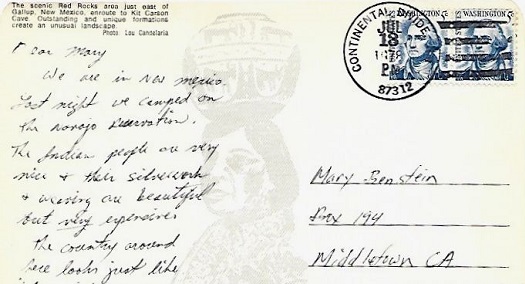 The scenic Red Rocks area just east of
Gallup, New Mexico, enroute to Kit Carson
Cave Outstanding and unique formations
create an unusual landscape.
Photo Lou Candelaria
CONTINENTAL DIVIDE
JUL
18
PM
87312
WASHINGTON 5c
WASHINGTON 5c
Dear Mary
We are in New Mexico.
Last night we camped on
the Navajo Reservation.
The Indian people are very
nice & their silverwork
& weaving are beautiful
but very expensive
The country around
here looks just like
Mary Benstein
Box 194
Middletown CA